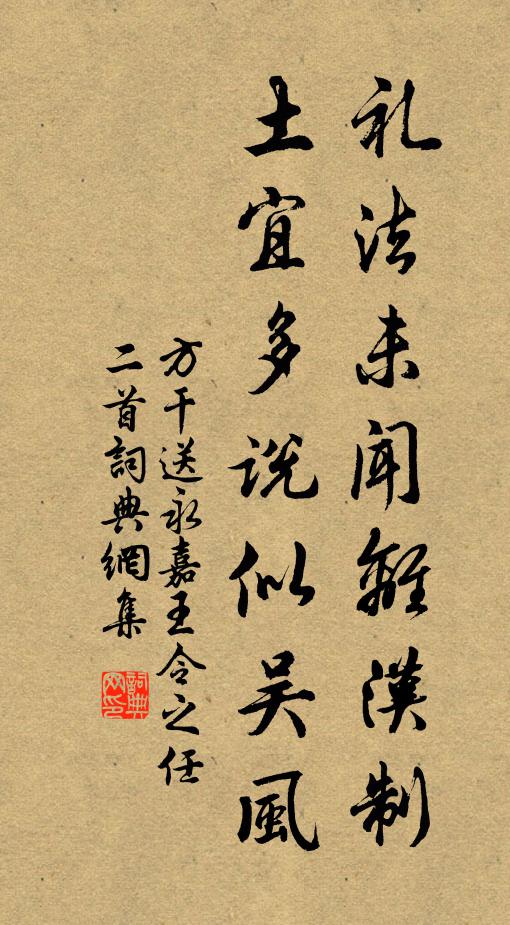 礼法未闻離漢制
土宜多说似吴風
方干送永嘉王令之任
二首詞典網集
詞典网印